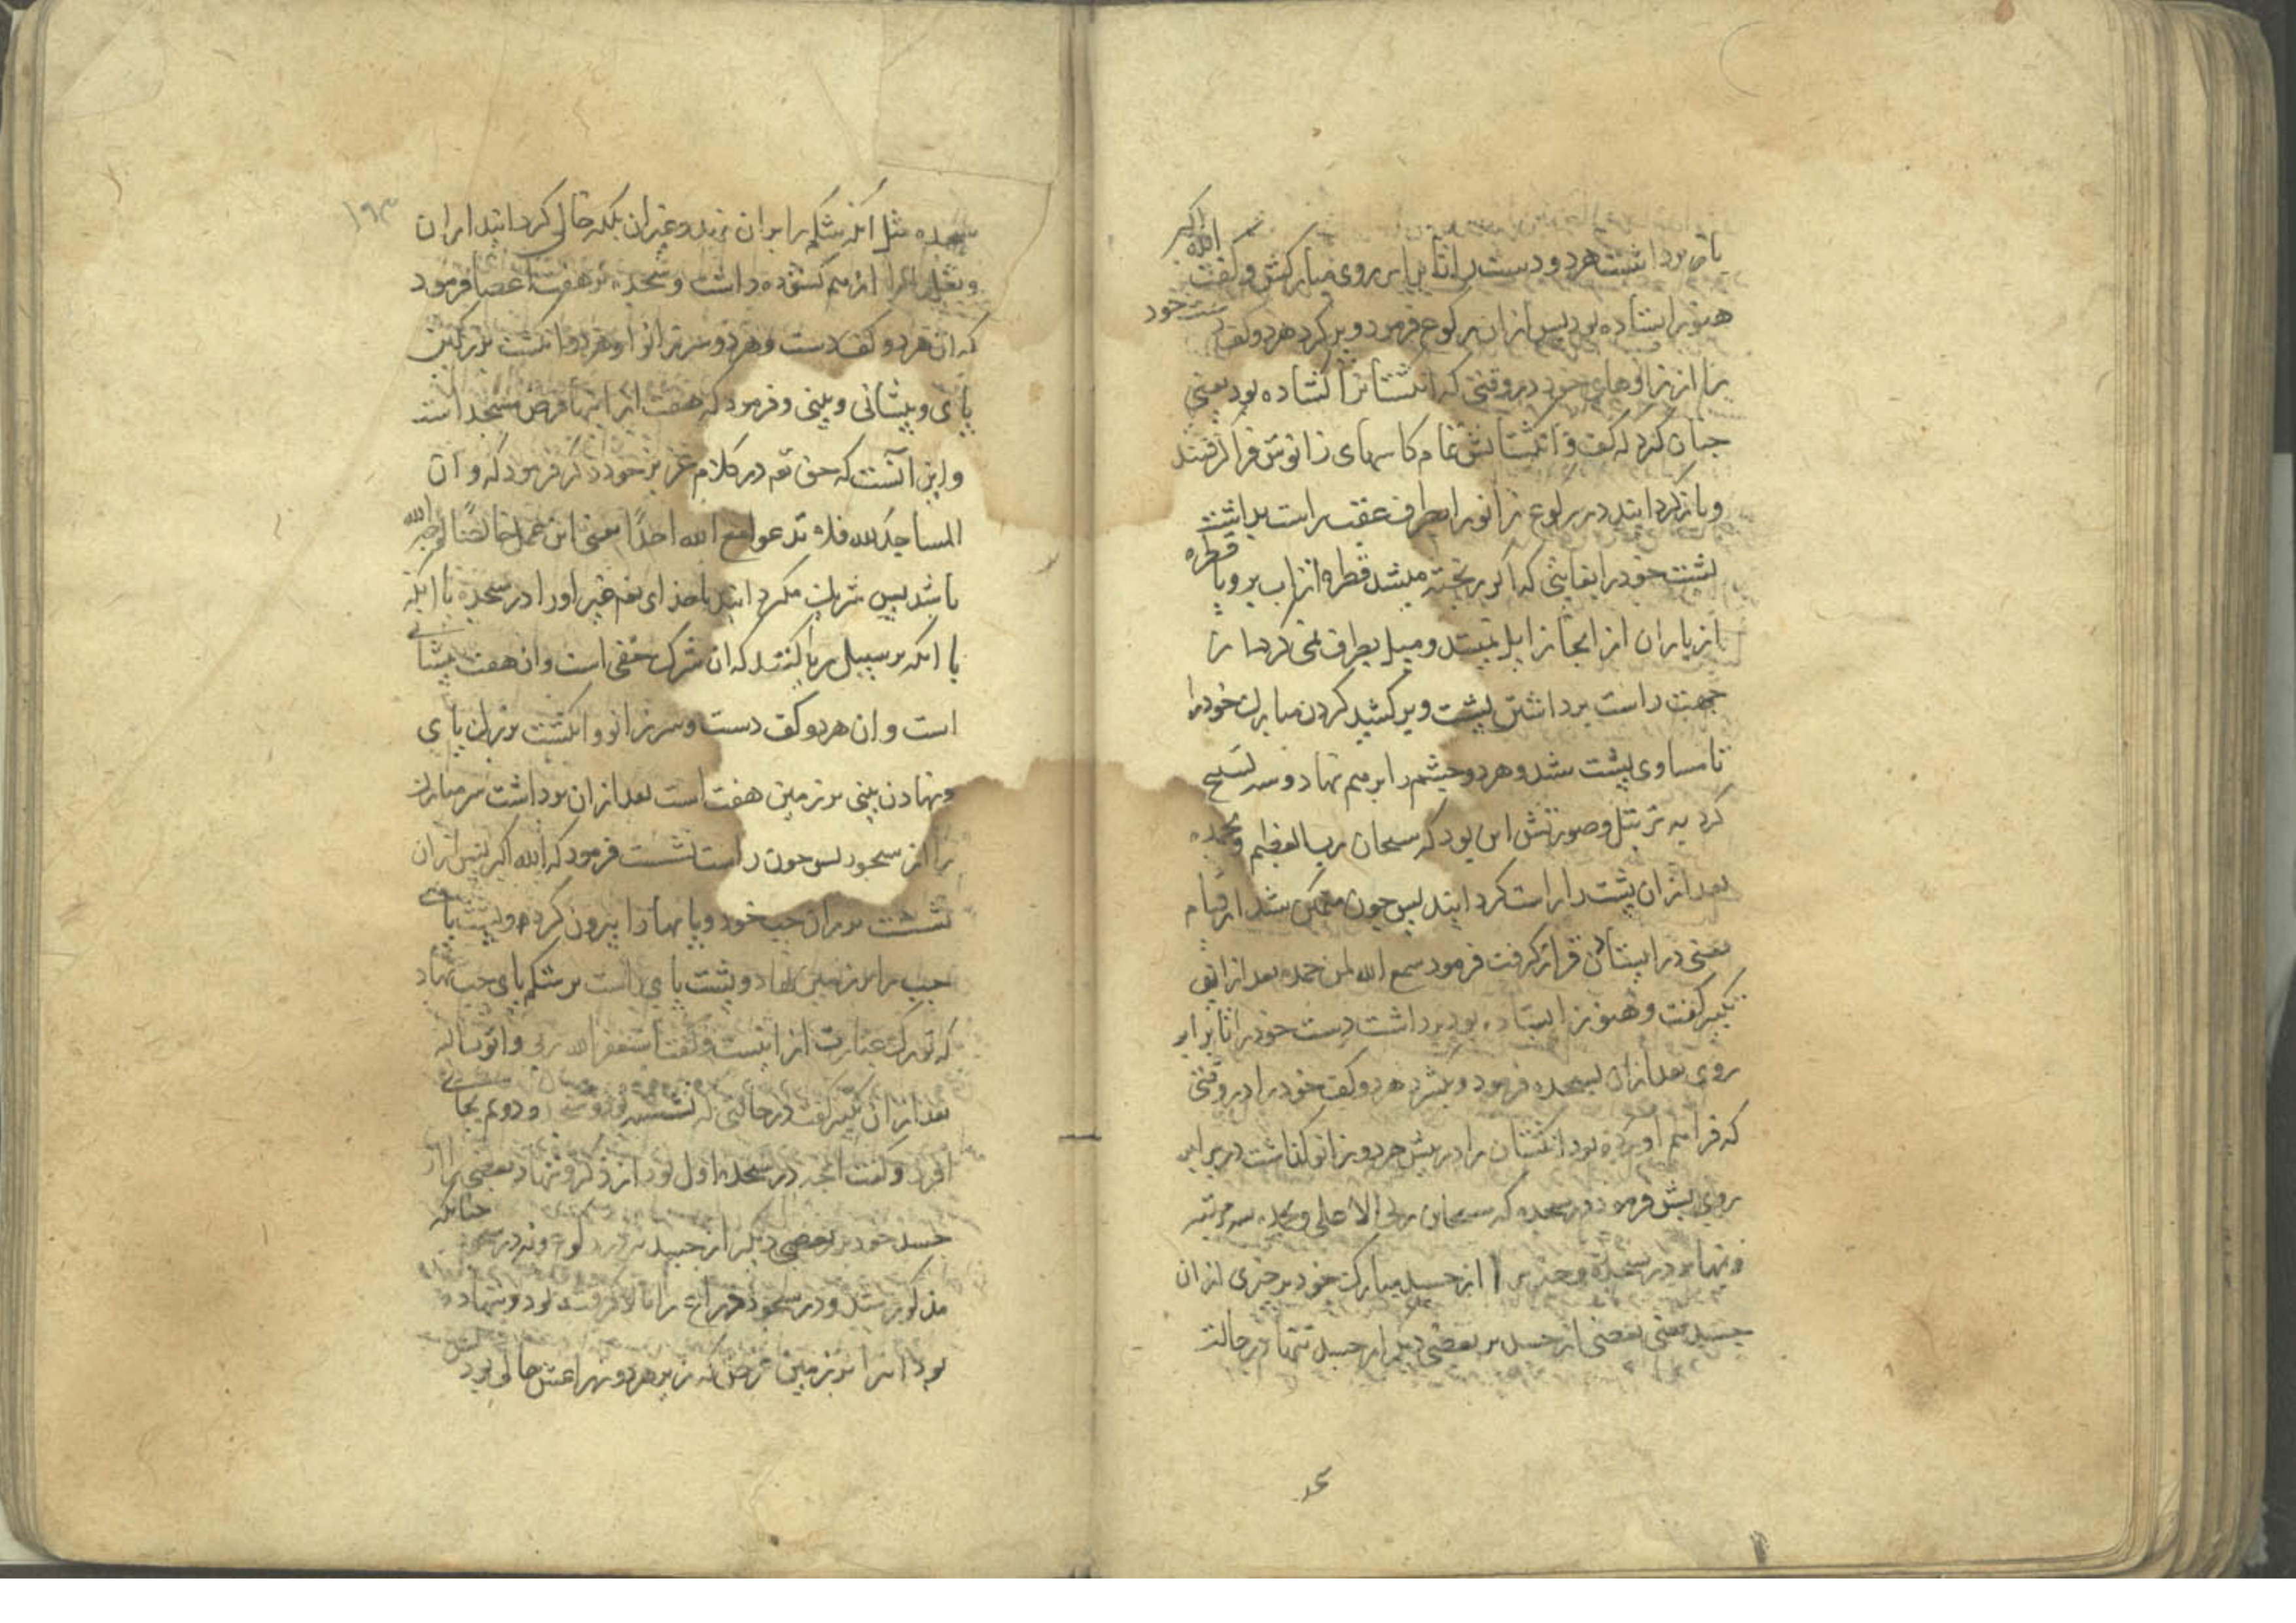 باز برداشت هر دو دست را تا برابر روی مبارکش و گفت الله اکبر
هنوز ایستاده بود پس از آن برکوع فرمود و پر کرد هر دو کف دست خود
را از زانوهای خود در وقتی که انگشتانرا گشاده بود یعنی
چنان کرد که کف و انگشتانش تمام کاسهای زانوش فرا گرفتند
و باز گردانید در رکوع زانو را بطرف عقب راست بداشت
پشت خود را بقایتی که اگر ریخته میشد قطره از آب بر و یا قطره
از باران از انجا زایل نمیشد و میل بطرفی نمی کرد از
جهت راست برداشتن پشت و بر کشید گردن مبارک خود را
تا مساوی پشت شد و هر دو چشم را بر هم نهاد و سه تسبیح
کرد به ترتیل و صورتش این بود که سبحان ربی العظیم و بحمده
بعد از ان پشت را راست گردانید پس چون متمکن شد از قیام
یعنی در ایستادن قرار گرفت فرمود سمع الله لمن حمده بعد از آن
تکبیر گفت و هنوز ایستاده بود برداشت دست خود را تا برابر
روی بعد از ان بسجده فرمود و بگسترد هر دو کف خود را در وقتی
که فراهم آورده بود انگشتان را در پیش هر دو زانو گذاشت در برابر
روی پیش فرمود در سجده که سبحان ربی الاعلی و بحمده سه مرتبه
و ننهاد در سجده چیزی را از جسد مبارک خود بر چیزی از ان
جسد یعنی بعضی از جسد بر بعضی دیگر از جسد ننهاد در حالت
سجده مثل آنکه شکم را بر ران نهد و غیر ان بلکه خالی گردانید از ران
و بغل را از هم گشوده داشت و سجده بر هفت اعضا فرمود
که ان هر دو کف دست و هر دو سر زانو و هر دو انگشت بزرگین
پای و پیشانی و بینی و فرمود که هفت از اینها فرض سجد است
و این آنست که حق تعم در کلام عزیز خود ذکر فرمود که و ان
المساجد لله فلا تدعوا مع الله احدًا یعنی این عمل خالصًا لوجه الله
باشد پس شریک مگردانید باخدای تعم غیر او را در سجده یا انکه
یا انکه بر سبیل ریا کنند که ان شرک خفی است و ان هفت پیشانی
است و ان هر دو کف دست و سر زانو و انگشت بزرک پای
و نهادن بینی بر زمین هفت است بعد از ان برداشت سر مبارک
را از سجود پس چون راست نشست فرمود که الله اکبر پس از ان
نشست بر ران چپ خود و پایها را بیرون کرده و پشت پای
چپ را بر زمین نهاد و پشت پای راست بر شکم پای چپ نهاد
که تورک عبارت از اینست و گفت استغفر الله ربی و اتوب الیه
بعد از ان تکبیر گفت در حالتی که نشسته بود و سجده دوم بجای
آورد و گفت انچه در سجده اول بود از ذکر و ننهاد بعضی را از
جسد خود بر بعضی دیگر از جسد نه در رکوع و نه در سجود چنانکه
مذکور شد و در سجود ذراع را بالا گرفته بود و ننهاده
بود انرا بر زمین غرض که زیر هر دو ذراعش خالی بود
۱۹۳